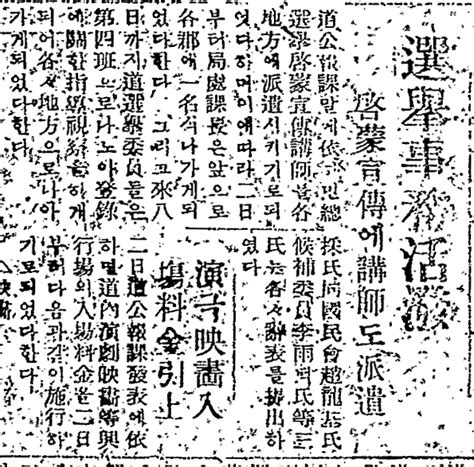 選擧事務活潑
啓蒙宣傳에講師도派遣
道公報課
選擧啓蒙宣傳講師를各
地方에派遣시키기로되
엿다하며이에따라二日
부터局處課長은앞으로
各郡에一名식나가게되
엿다한다 그리고來八
日까지道選擧委員들은
第四班으로나노아登錄
에關한指導視察을하게
되어各々地方으로나아
가게되었다한다
採氏
國民會趙龍基氏
候補委員李雨 氏等三
氏는各々辭表를提出하
였다
演극映畵入
場料金引上
二日道公報課發表에依
하면道內演劇映畵等興
行場의入場料金은二日
부터다음과같이施行하
기로되었다한다